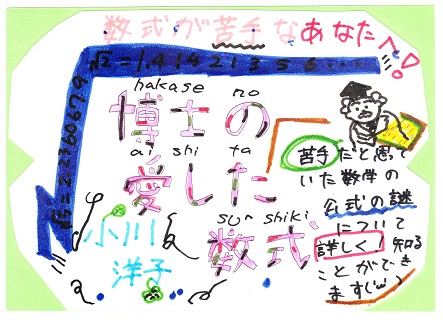 数式が苦手なあなたへ!
√2=1.41421356……
√5=2.2360679
hakase no
博士の
ai shi ta
愛した
sūr shiki
数式
小川
洋子
苦手だと思って
いた数学の
公式の謎
について
詳しく知る
ことができ
ます(ω)